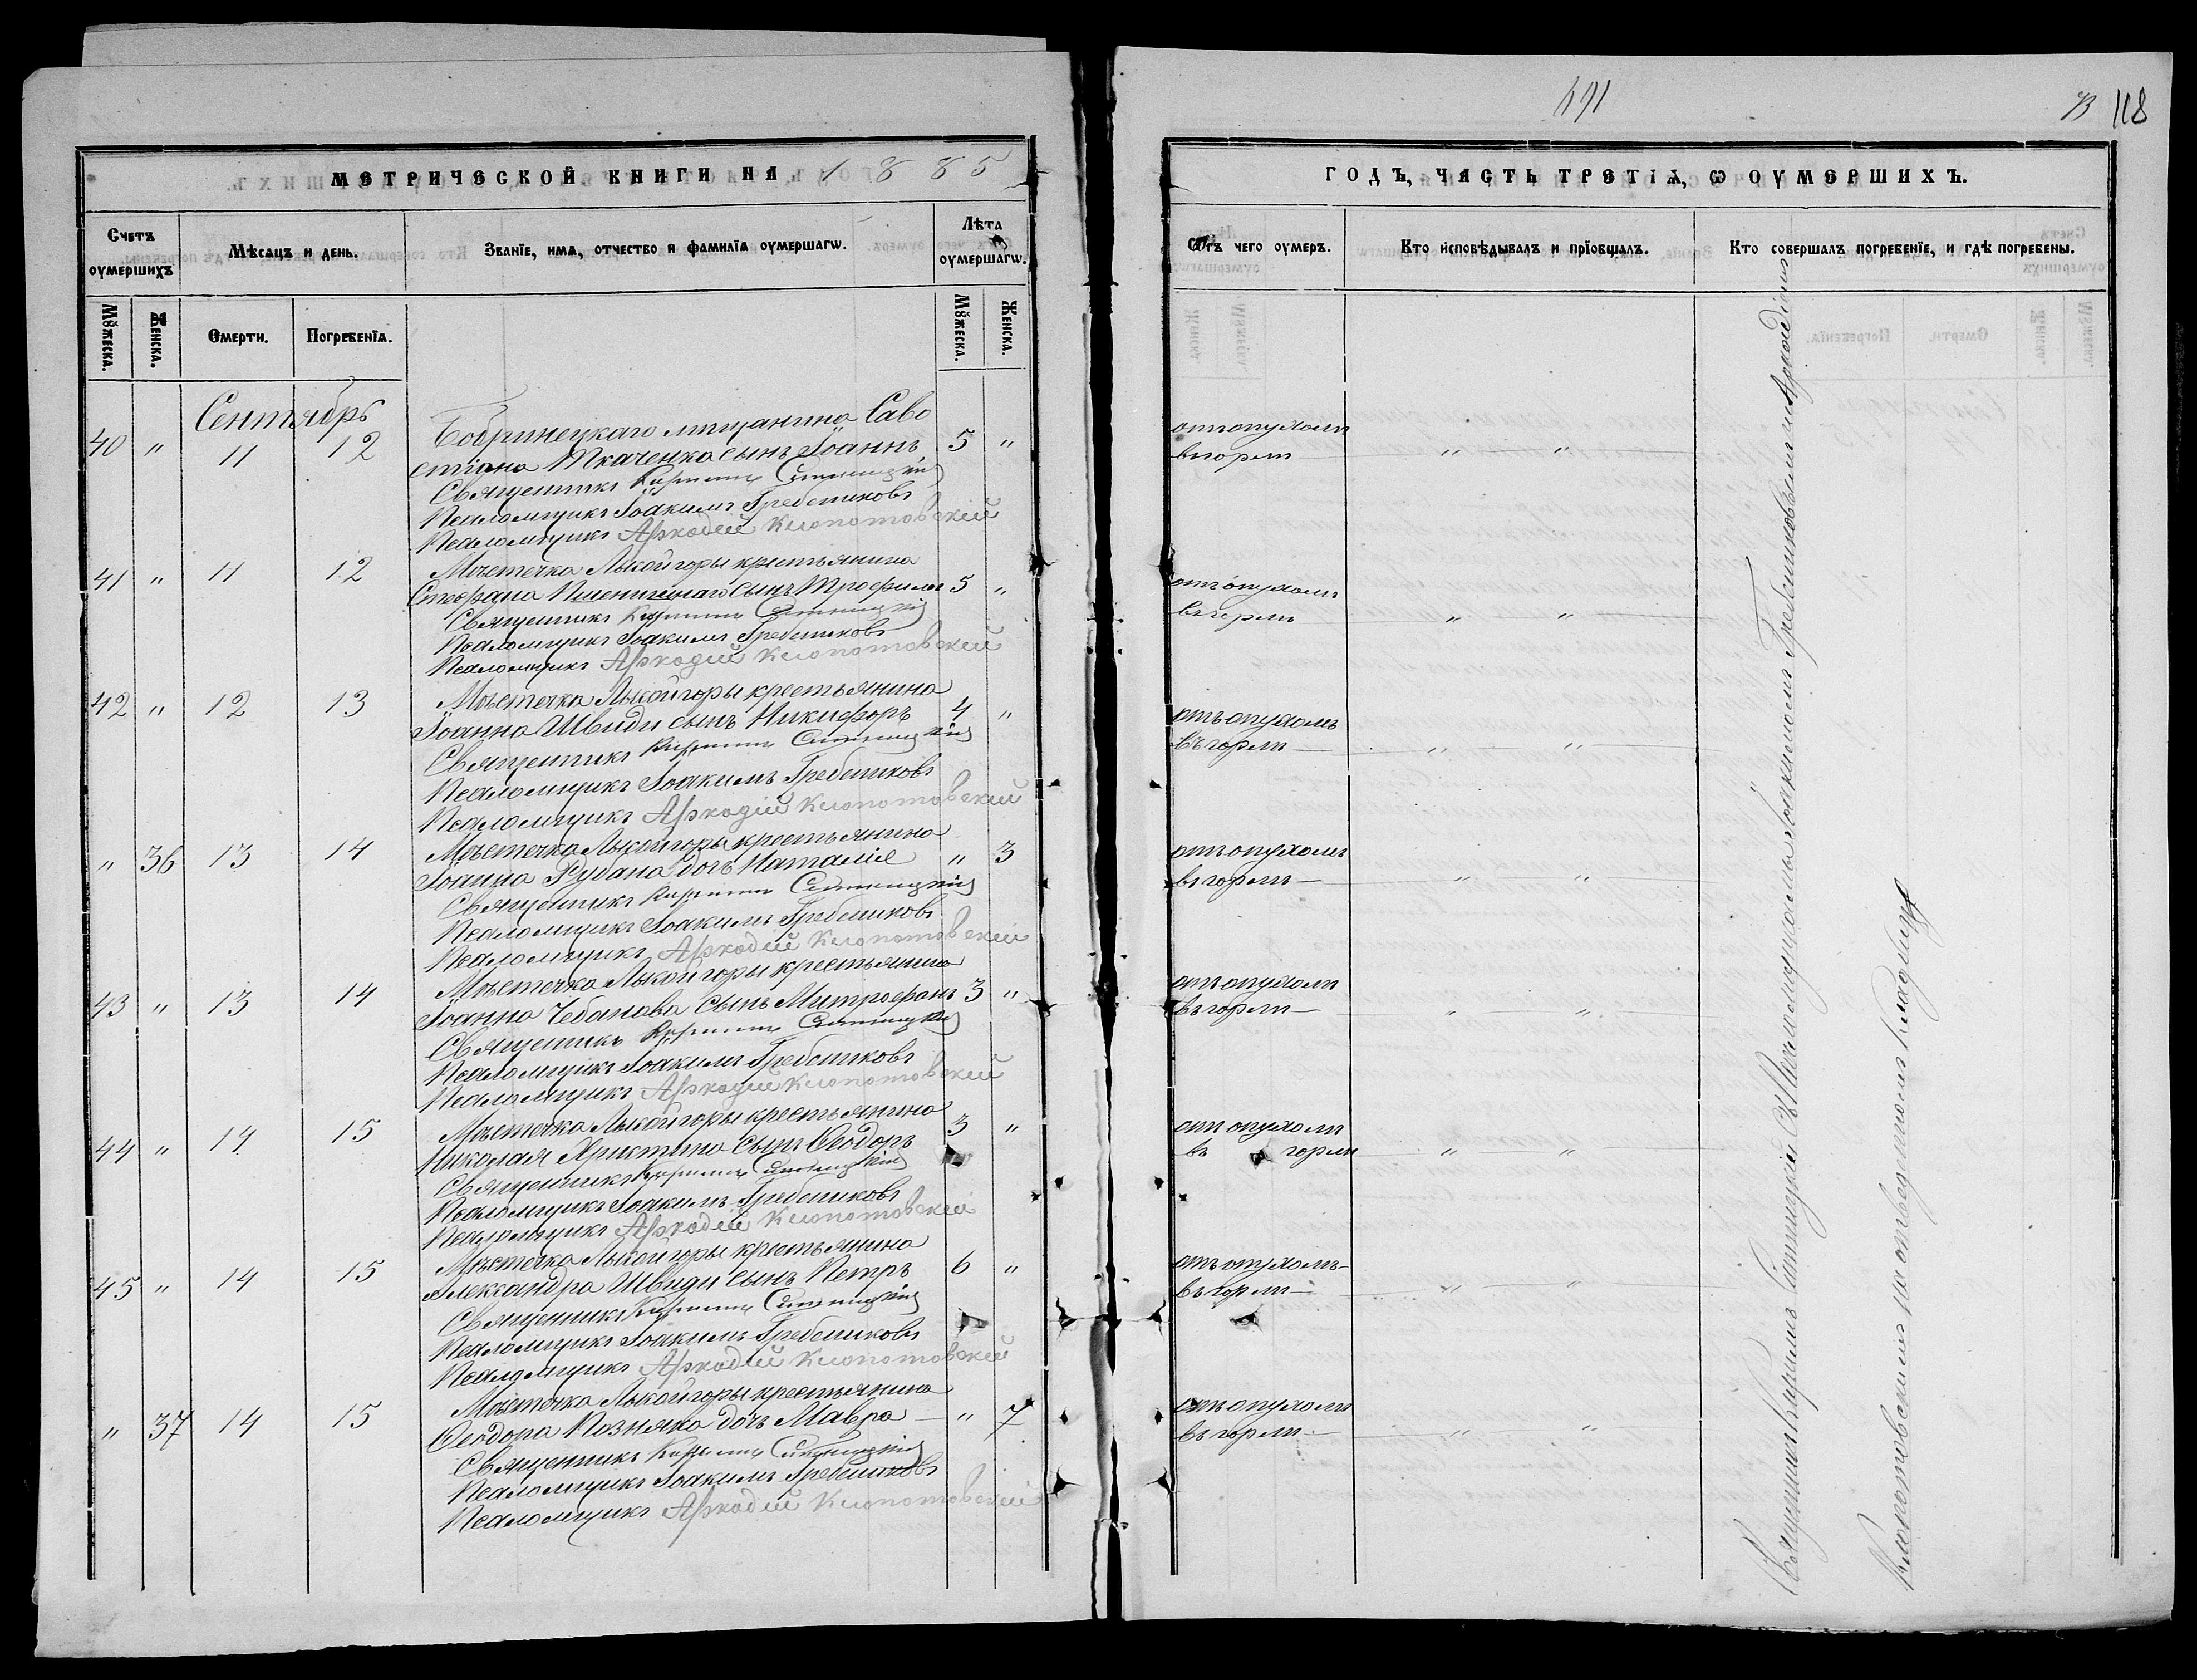 МЕТРИЧЕСКОЙ КНИГИ НА 1885
Счетъ оумершихъ
Мѣсяцъ и день.
Званїе, имѧ, отчество и фамилїѧ оумершагѡ.
Лѣта оумершагѡ.
Мꙋжеска.
Женска.
Смерти.
Погребенїѧ.
Мꙋжеска.
Женска.
Сентябрь
40 " 11 12 Бобринецкаго мѣщанина Саво
стіана Ткаченка сынъ Іоаннъ 5 "
Священникъ Кириллъ Ситницкій
Псаломщикъ Іоакимъ Гребениковъ
Псаломщикъ Аркадій Клопотовскій
41 " 11 12 Мѣстечка Лысой горы крестьянина
Стефана Пшеничнаго сынъ Трофимъ 5 "
Священникъ Кириллъ Ситницкій
Псаломщикъ Іоакимъ Гребениковъ
Псаломщикъ Аркадій Клопотовскій
42 " 12 13 Мѣстечка Лысой горы крестьянина
Іоанна Швиди сынъ Никифоръ 4 "
Священникъ Кириллъ Ситницкій
Псаломщикъ Іоакимъ Гребениковъ
Псаломщикъ Аркадій Клопотовскій
" 36 13 14 Мѣстечка Лысой горы крестьянина
Іоанна Рубана дочь Наталія " 3
Священникъ Кириллъ Ситницкій
Псаломщикъ Іоакимъ Гребениковъ
Псаломщикъ Аркадій Клопотовскій
43 " 13 14 Мѣстечка Лысой горы крестьянина
Іоанна Чебанова сынъ Митрофанъ 3 "
Священникъ Кириллъ Ситницкій
Псаломщикъ Іоакимъ Гребениковъ
Псаломщикъ Аркадій Клопотовскій
44 " 14 15 Мѣстечка Лысой горы крестьянина
Николая Христина сынъ Ѳеодоръ 3 "
Священникъ Кириллъ Ситницкій
Псаломщикъ Іоакимъ Гребениковъ
Псаломщикъ Аркадій Клопотовскій
45 " 14 15 Мѣстечка Лысой горы крестьянина
Александра Швиди сынъ Петръ 6 "
Священникъ Кириллъ Ситницкій
Псаломщикъ Іоакимъ Гребениковъ
Псаломщикъ Аркадій Клопотовскій
" 37 14 15 Мѣстечка Лысой горы крестьянина
Ѳеодора Позняка дочь Мавра " 7
Священникъ Кириллъ Ситницкій
Псаломщикъ Іоакимъ Гребениковъ
Псаломщикъ Аркадій Клопотовскій
118
ГОДЪ, ЧАСТЬ ТРЕТІѦ, Ѡ ОУМЕРШИХЪ.
Ѿтъ чего оумеръ.
Кто исповѣдывалъ и прїобщалъ.
Кто совершалъ погребенїе, и гдѣ погребены.
отъ опухоли
въ горлѣ " "
отъ опухоли
въ горлѣ " "
отъ опухоли
въ горлѣ " "
отъ опухоли
въ горлѣ " "
отъ опухоли
въ горлѣ " "
отъ опухоли
въ горлѣ " "
отъ опухоли
въ горлѣ " "
отъ опухоли
въ горлѣ " "
Священникъ Кириллъ Ситницкій съ Псаломщиками Іоакимомъ Гребениковымъ и Аркадіемъ
Клопотовскимъ на отведенномъ кладбищѣ